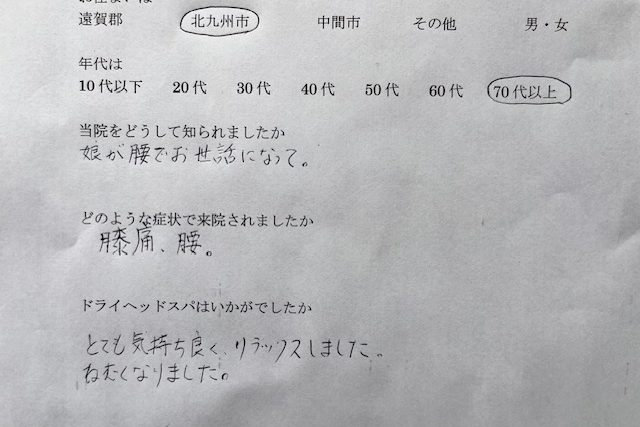 お住まいは
遠賀郡 北九州市 中間市 その他 男・女
年代は
10代以下 20代 30代 40代 50代 60代 70代以上
当院をどうして知られましたか
娘が腰でお世話になって。
どのような症状で来院されましたか
膝痛、腰。
ドライヘッドスパはいかがでしたか
とても気持ち良く、リラックスしました。
ねむくなりました。